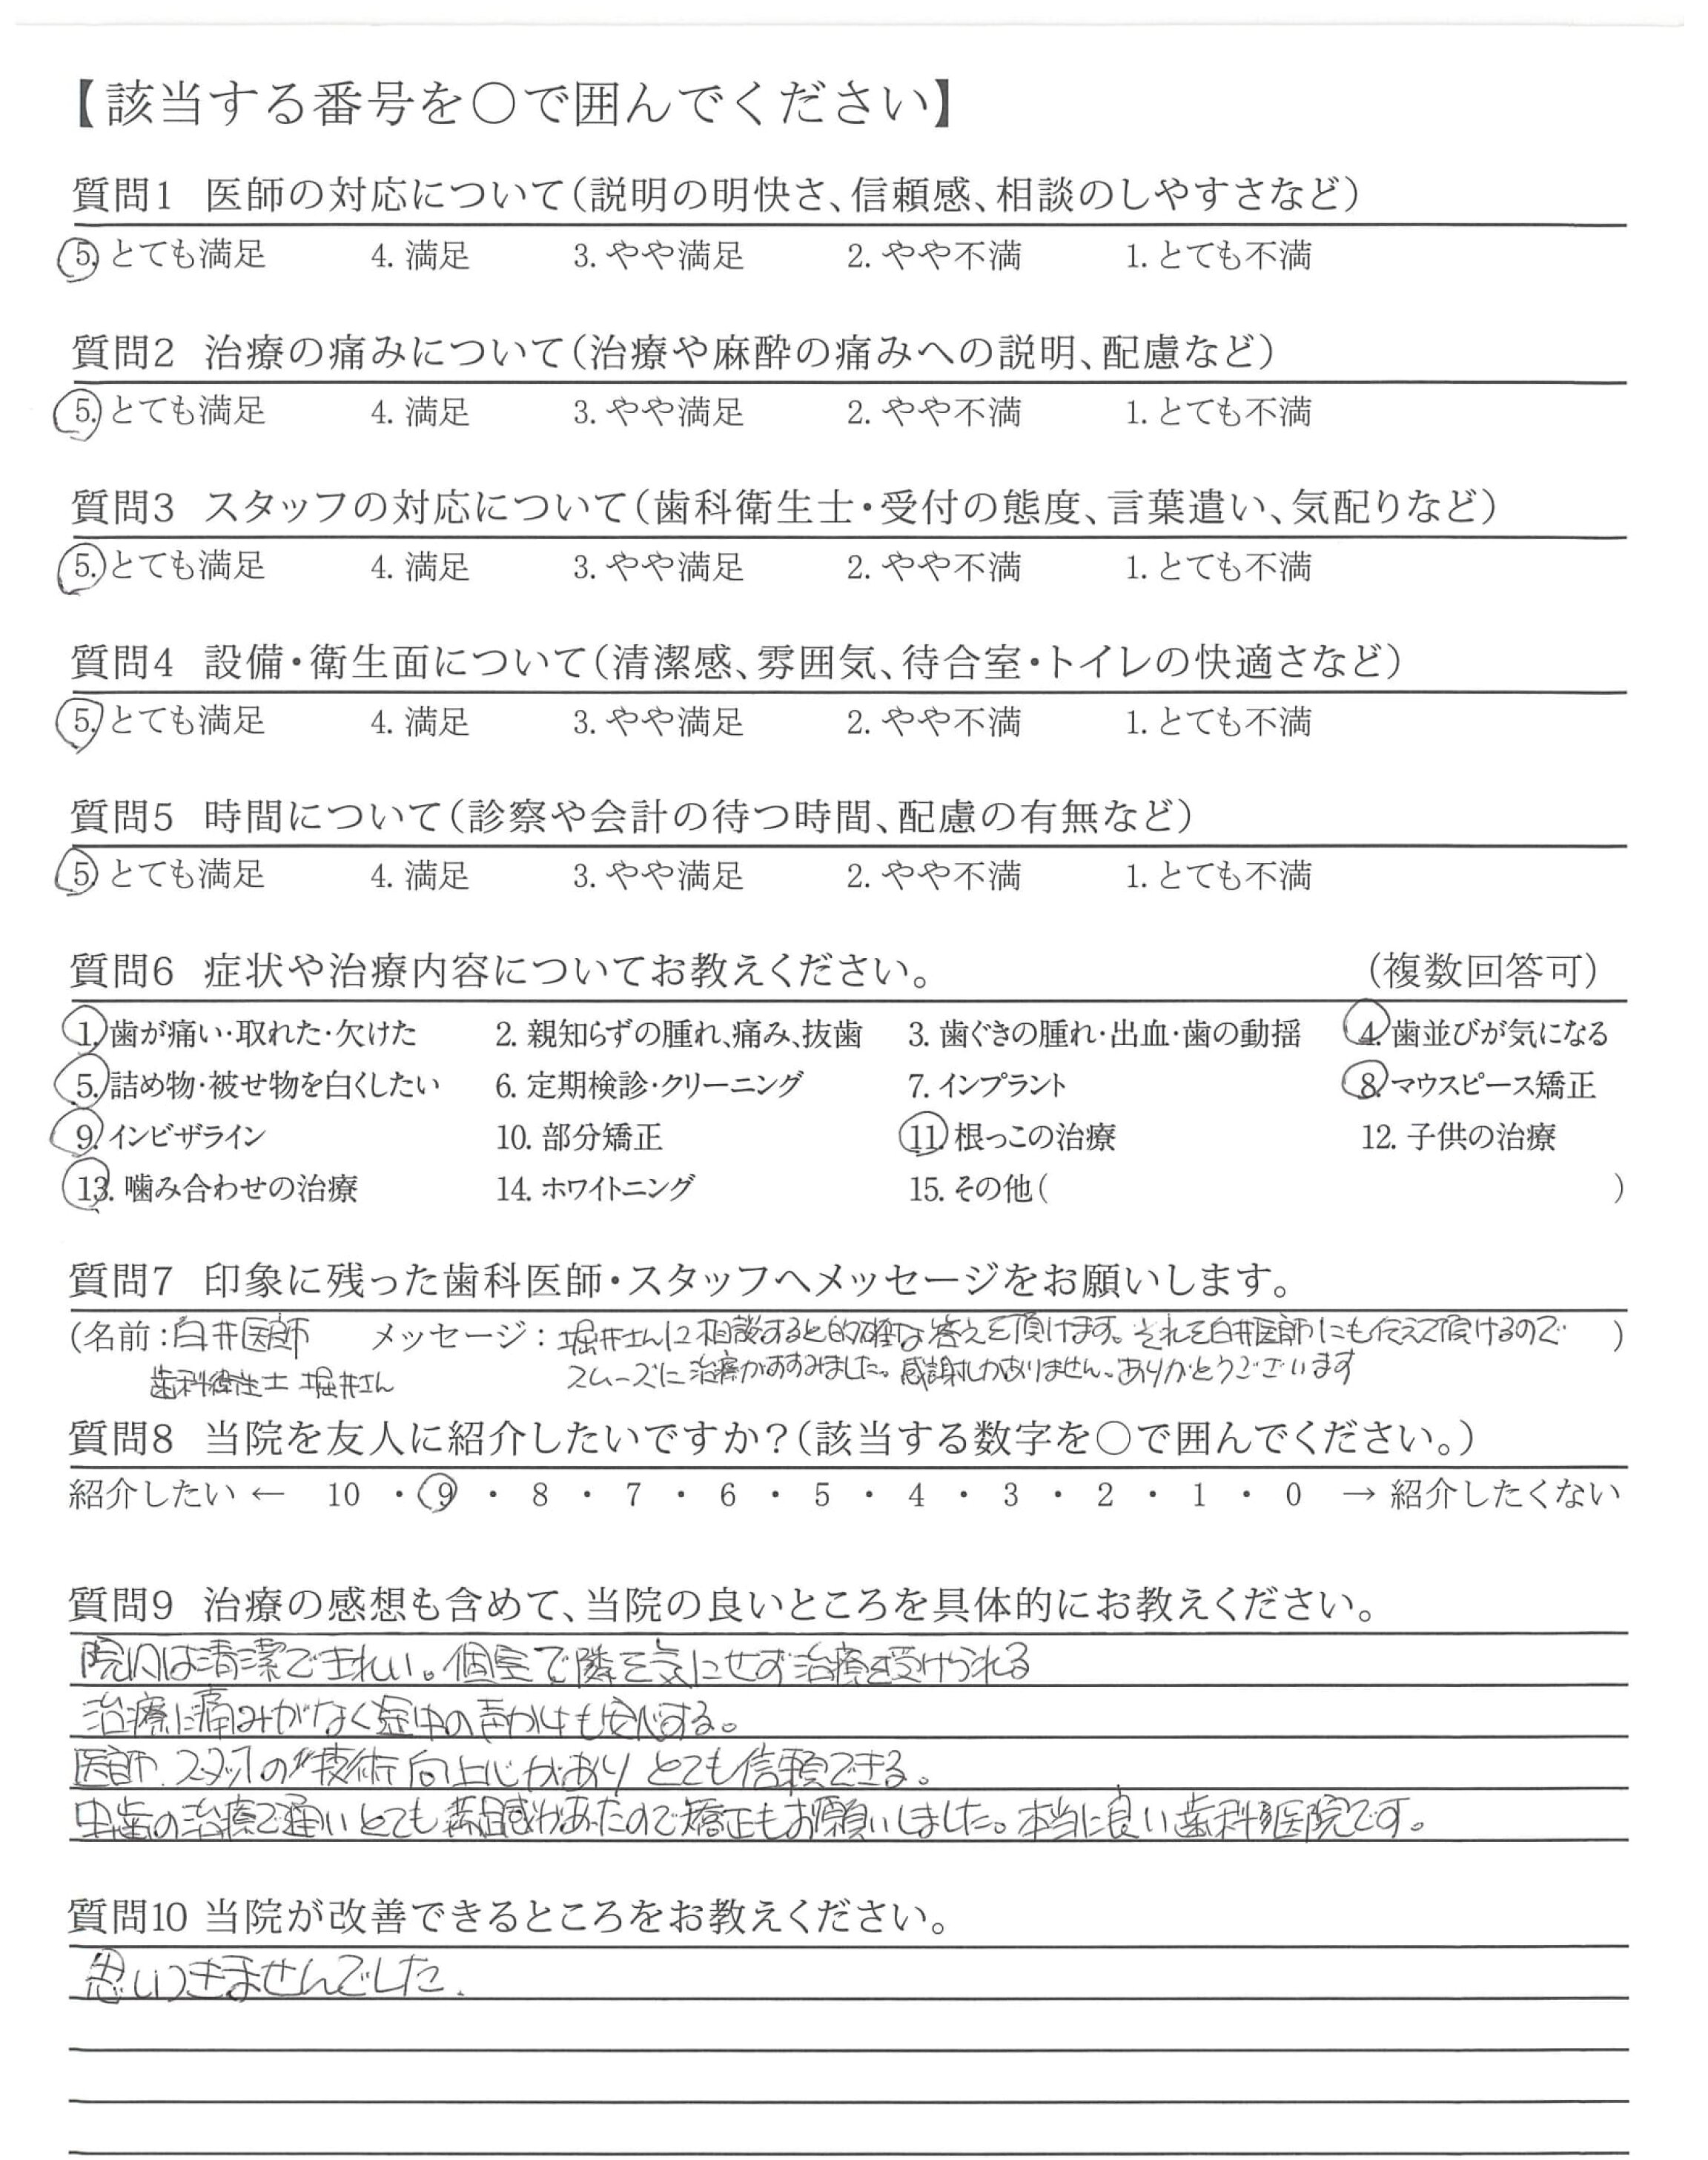 【該当する番号を○で囲んでください】
質問1 医師の対応について(説明の明快さ、信頼感、相談のしやすさなど)
5. とても満足 4. 満足 3. やや満足 2. やや不満 1. とても不満
質問2 治療の痛みについて(治療や麻酔の痛みへの説明、配慮など)
5. とても満足 4. 満足 3. やや満足 2. やや不満 1. とても不満
質問3 スタッフの対応について(歯科衛生士・受付の態度、言葉遣い、気配りなど)
5. とても満足 4. 満足 3. やや満足 2. やや不満 1. とても不満
質問4 設備・衛生面について(清潔感、雰囲気、待合室・トイレの快適さなど)
5. とても満足 4. 満足 3. やや満足 2. やや不満 1. とても不満
質問5 時間について(診察や会計の待つ時間、配慮の有無など)
5. とても満足 4. 満足 3. やや満足 2. やや不満 1. とても不満
質問6 症状や治療内容についてお教えください。 (複数回答可)
1. 歯が痛い・取れた・欠けた 2. 親知らずの腫れ、痛み、抜歯 3. 歯ぐきの腫れ・出血・歯の動揺 4. 歯並びが気になる
5. 詰め物・被せ物を白くしたい 6. 定期検診・クリーニング 7. インプラント 8. マウスピース矯正
9. インビザライン 10. 部分矯正 11. 根っこの治療 12. 子供の治療
13. 噛み合わせの治療 14. ホワイトニング 15. その他( )
質問7 印象に残った歯科医師・スタッフへメッセージをお願いします。
(名前:白井医師 メッセージ:堀井さんに相談すると的確な答えを頂けます。それを白井医師にも伝えて頂けるので )
歯科衛生士 堀井さん スムーズに治療がすすみました。感謝しかありません。ありがとうございます
質問8 当院を友人に紹介したいですか?(該当する数字を○で囲んでください。)
紹介したい ← 10 ・ 9 ・ 8 ・ 7 ・ 6 ・ 5 ・ 4 ・ 3 ・ 2 ・ 1 ・ 0 → 紹介したくない
質問9 治療の感想も含めて、当院の良いところを具体的にお教えください。
院内は清潔できれい。個室で隣を気にせず治療を受けられる
治療に痛みがなく途中の声かけも安心する。
医師、スタッフの技術向上心があり とても信頼できる。
虫歯の治療で通いとても満足感があったので矯正もお願いしました。本当に良い歯科医院です。
質問10 当院が改善できるところをお教えください。
思いつきませんでした。